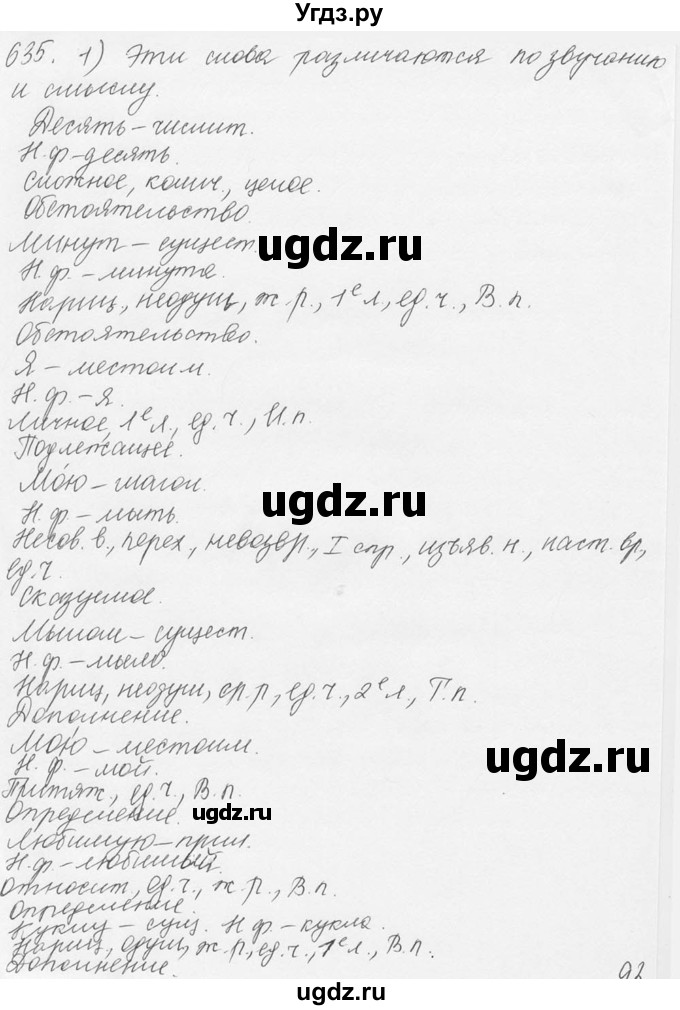 Угдз.ру
635. 1) Эти слова различаются по звучанию
и смыслу.
Десять – числит.
Н.ф – десять.
Сложное, колич., целое.
Обстоятельство.
Минут – сущест.
ugdz.ru
Н.ф. – минута.
Нариц., неодуш., ж.р., 1е л., ед.ч., В.п.
Обстоятельство.
Я – местоим.
Н.ф. – я.
Личное, 1е л., ед.ч., И.п.
Подлежащее.
Мо́ю – глагол.
ugdz.ru
Н.ф. – мыть.
Несов.в., перех., невозвр., I спр., изъяв.н., наст.вр.,
ед.ч.
Сказуемое.
Мылом – сущест.
Н.ф. – мыло.
Нариц., неодуш., ср.р., ед.ч., 2е л., Т.п.
Дополнение.
Мою́ – местоим.
ugdz.ru
Н.ф. – мой.
Притяж., ед.ч., В.п.
Определение.
ugdz.ru
Любимую – прил.
Н.ф. – любимый.
Относит., ед.ч., ж.р., В.п.
Определение.
Куклу – сущ. Н.ф. – кукла.
Нариц., одуш., ж.р., ед.ч., 1е л., В.п.
Дополнение.
92
ugdz.ru